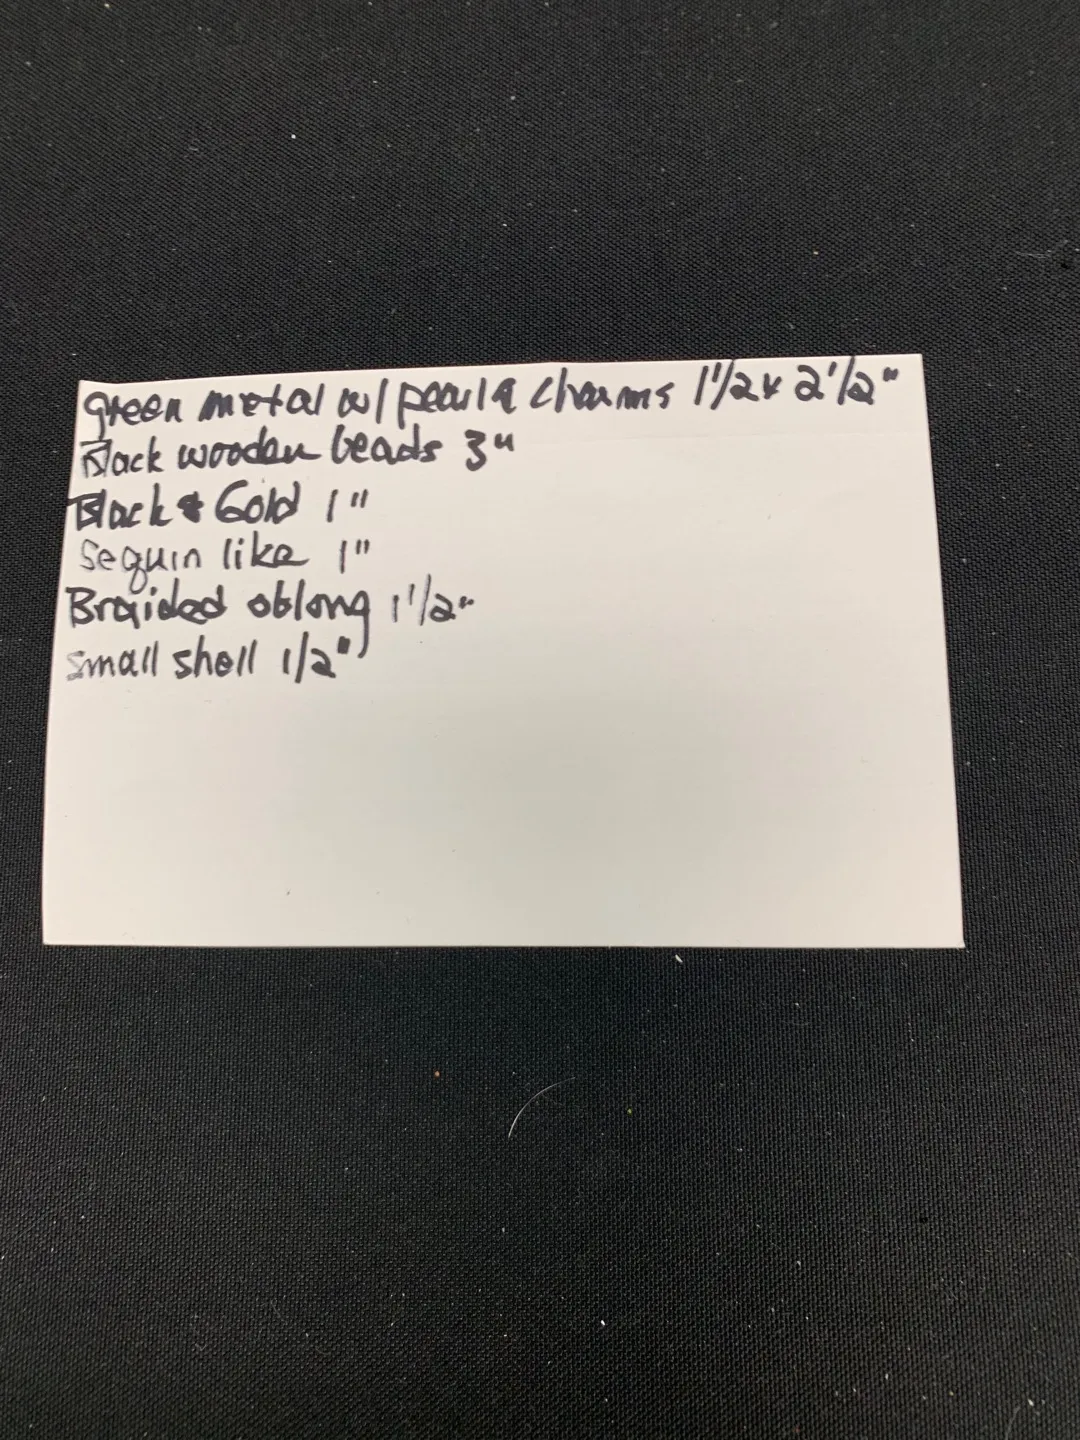 green metal w/ pearl & charms 1 1/2 x 2 1/2"
Black wooden beads 3"
Black & Gold 1"
Sequin like 1"
Braided oblong 1 1/2"
Small shell 1/2"